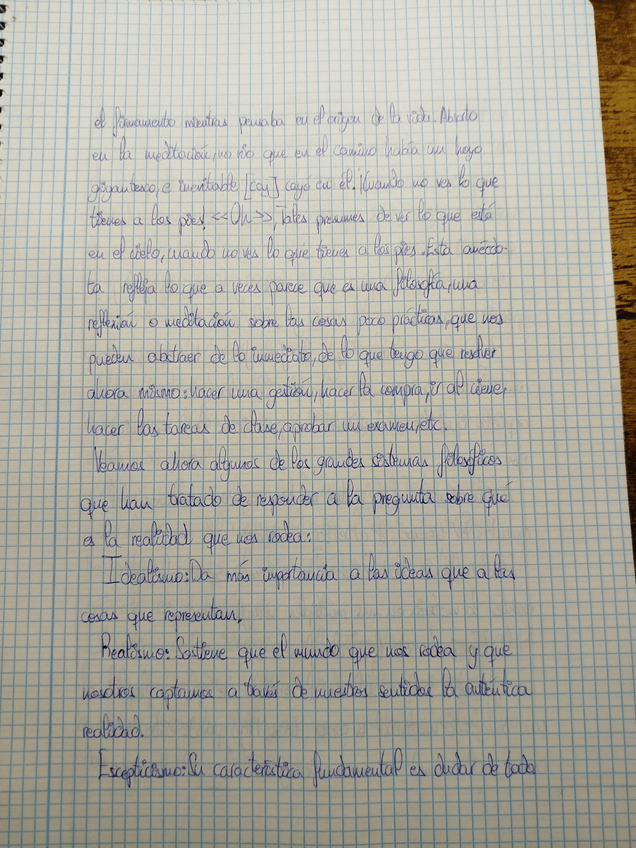 el firmamento mientras pensaba en el origen de la vida. Absorto
en la meditación, no vio que en el camino había un hoyo
gigantesco, e inevitable [cay] cayó en él. ¡Cuando no ves lo que
tienes a los pies! <<Oh>>, Tales presumes de ver lo que está
en el cielo, cuando no ves lo que tienes a los pies. Esta anécdo-
ta refleja lo que a veces parece que es una filosofía, una
reflexión o meditación sobre las cosas poco prácticas, que nos
pueden abstraer de lo inmediato, de lo que tengo que resolver
ahora mismo: hacer una gestión, hacer la compra, ir al cine,
hacer las tareas de clase, aprobar un examen, etc.
Veamos ahora algunos de los grandes sistemas filosóficos
que han tratado de responder a la pregunta sobre qué
es la realidad que nos rodea:
Idealismo: Da más importancia a las ideas que a las
cosas que representan.
Realismo: Sostiene que el mundo que nos rodea y que
nosotros captamos a través de nuestros sentidos la auténtica
realidad.
Escepticismo: Su característica fundamental es dudar de todo